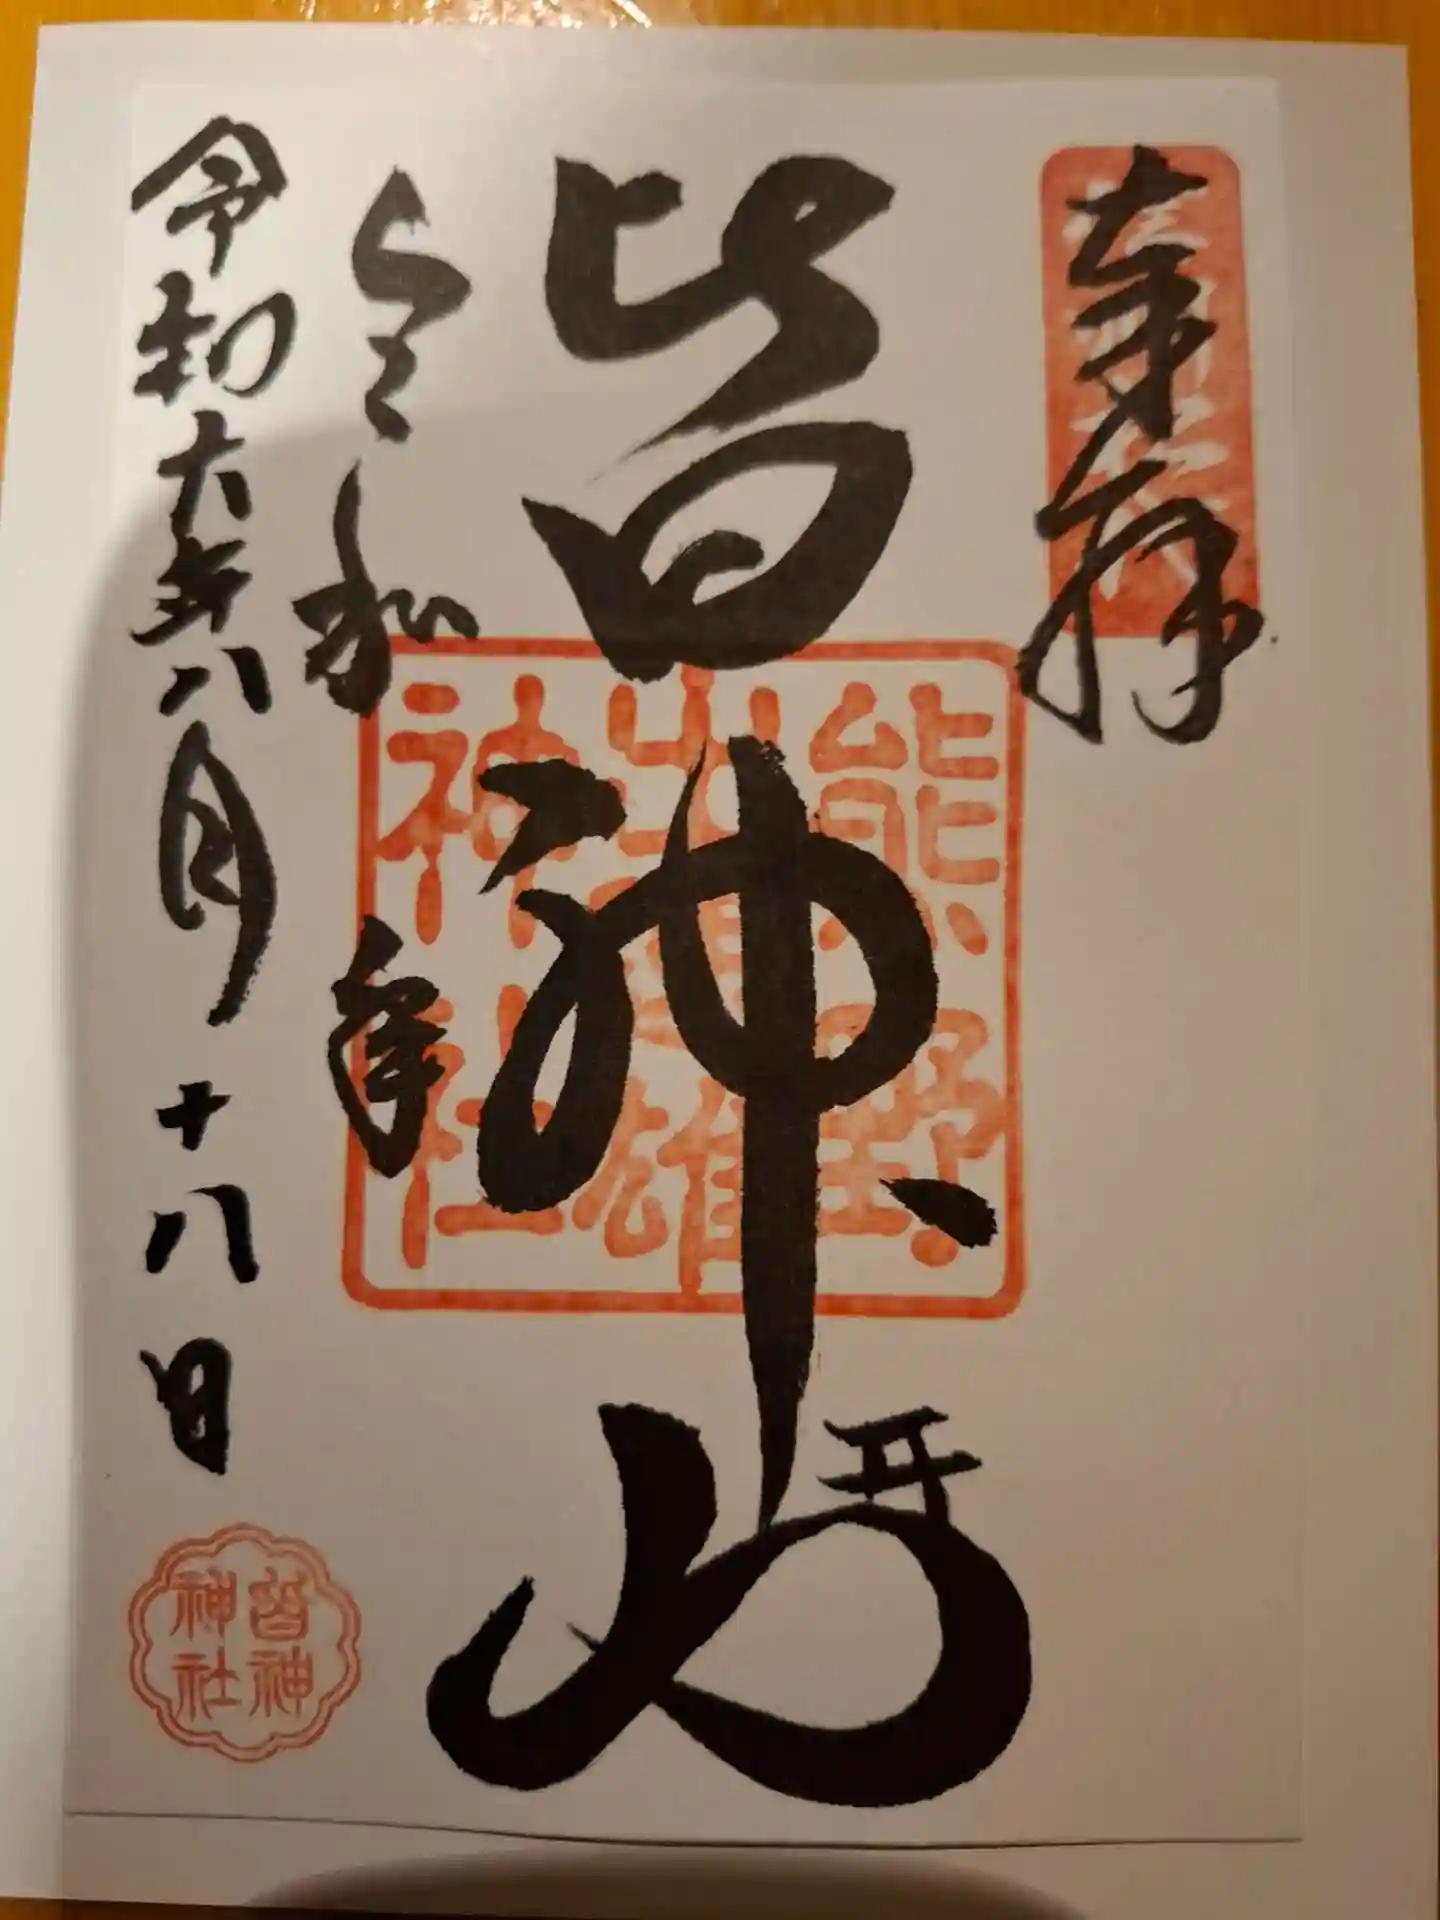 奉拝
皆神山
熊野
出速雄
神社
令和 年
令和六年八月十八日
皆神
神社